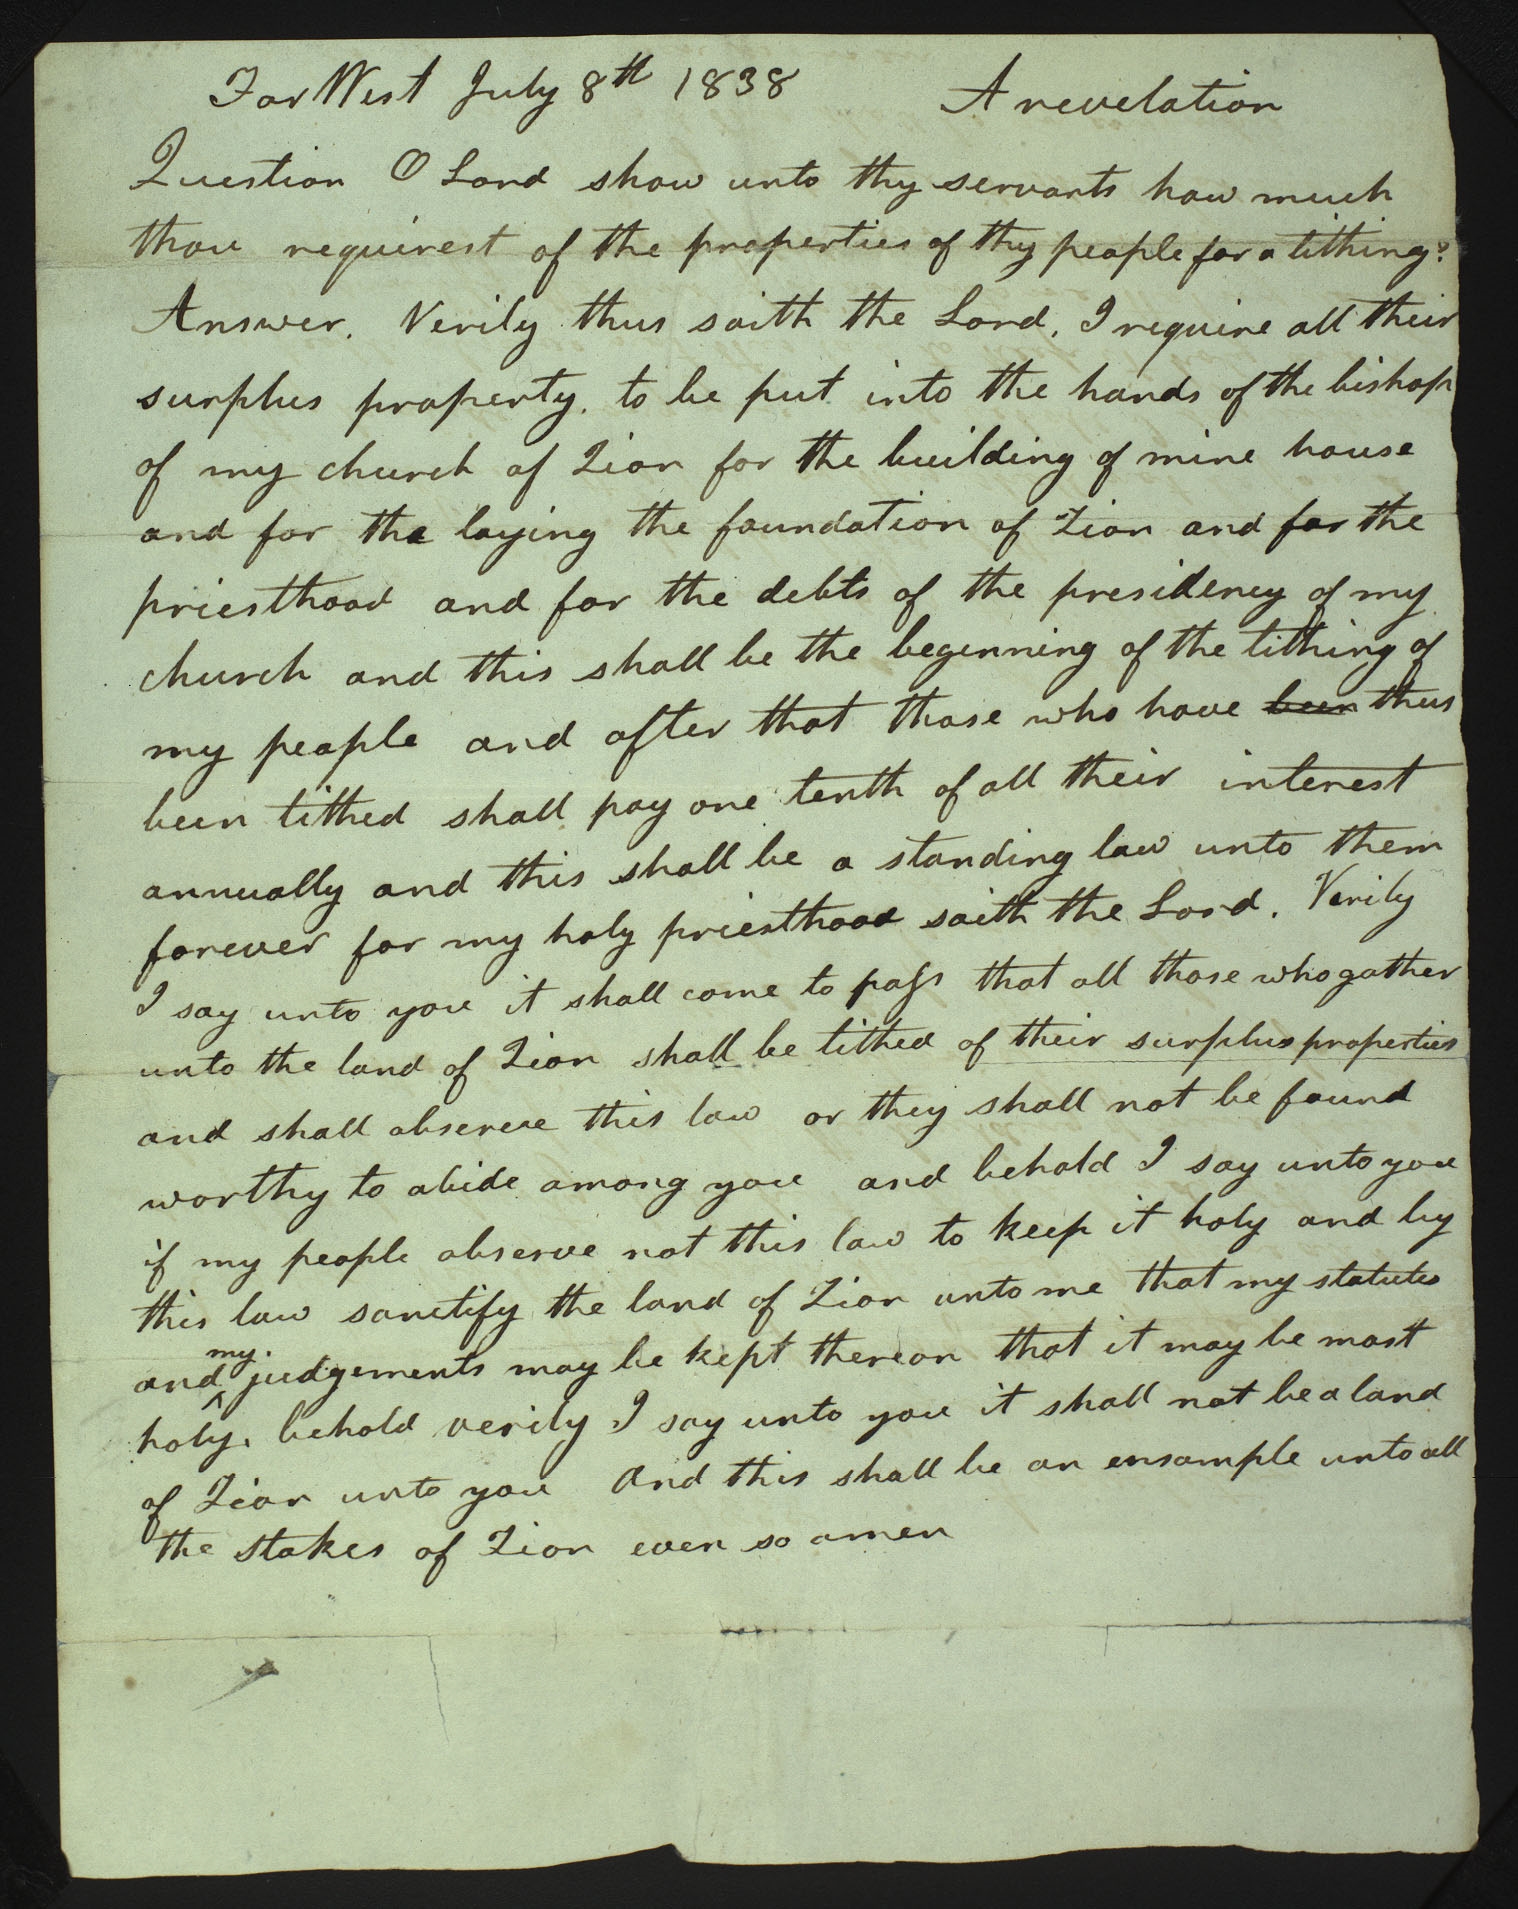 Far West July 8th 1838 A revelation
Question O Lord show unto thy servants how much
thou requirest of the properties of thy people for a tithing?
Answer. Verily thus saith the Lord, I require all their
surplus property, to be put into the hands of the bishop
of my church of Zion for the building of mine house
and for the laying the foundation of Zion and for the
priesthood and for the debts of the presidency of my
church and this shall be the beginning of the tithing of
my people and after that those who have been thus
been tithed shall pay one tenth of all their interest
annually and this shall be a standing law unto them
forever for my holy priesthood saith the Lord. Verily
I say unto you it shall come to pass that all those who gather
unto the land of Zion shall be tithed of their surplus properties
and shall observe this law or they shall not be found
worthy to abide among you and behold I say unto you
if my people observe not this law to keep it holy and by
this law sanctify the land of Zion unto me that my statutes
and my judgements may be kept thereon that it may be most
holy, behold verily I say unto you it shall not be a land
of Zion unto you and this shall be an ensample unto all
the stakes of Zion even so amen